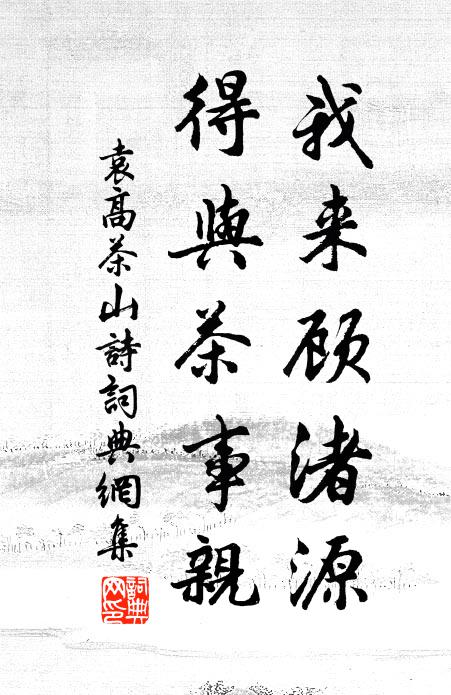 我来顾渚源
得與茶事親
袁高茶山詩詞典網集
詞典網印